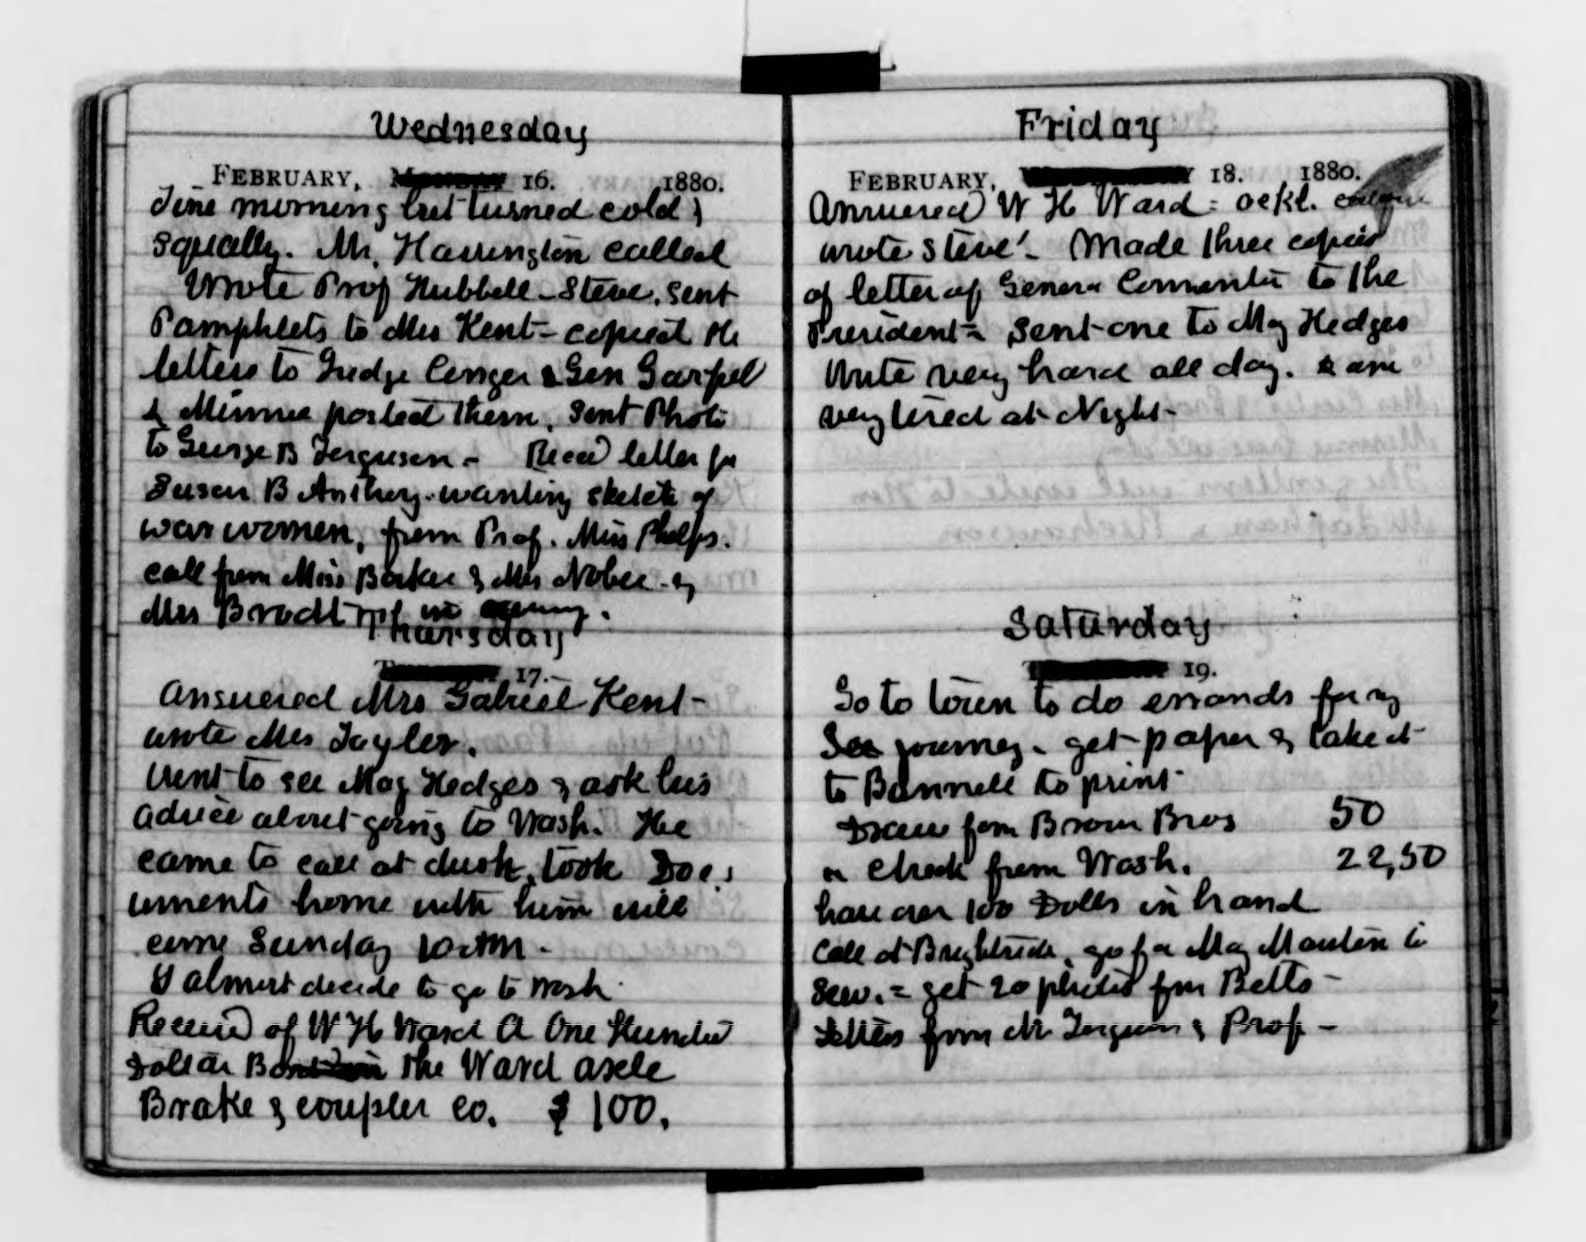 Wednesday
FEBRUARY, 16. 1880.
Fine morning but turned cold &
squally. Mr. Harrington called
Wrote Prof Hubbell - Steve. sent
Pamphlets to Mrs Kent - copied the
letters to Judge Conger & Gen Garfield
& Minnie posted them, sent Photo
to George B Ferguson - Recd letter fm
Susan B Anthony - wanting sketch of
war women, from Prof. Miss Phelps.
call from Miss Barker & Mrs Noble - &
Mrs Brodt in evening.
Thursday
17.
Answered Mrs Gabriel Kent -
wrote Mrs Tayler.
Went to see Maj Hedges & ask his
advice about going to Wash. He
came to call at dusk, took Doc
uments home with him will
come Sunday 10 AM -
I almost decide to go to Wash.
Received of W H Ward A One Hundred
Dollar the Ward axle
Brake & coupler co. $ 100.
Friday
FEBRUARY, 18. 1880.
Answered W H Ward =
wrote Steve - Made three copies
of letter of General Committee to the
President = sent one to Maj Hedges
Write very hard all day. & am
very tired at Night -
Saturday
19.
Go to town to do errands for my
journey - get paper & take it
to Bunnell to print -
Draw from Brown Bros 50
a check from Wash. 22,50
have over 100 Dolls in hand
Call at Brightside, go for May Moulton to
sew. = get 20 photos from Betts -
Letters from Mr Ferguson & Prof -